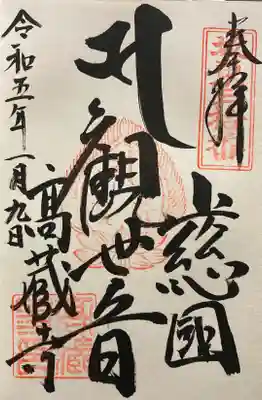 奉拝
上総國
正観世音
高蔵寺
令和五年一月九日